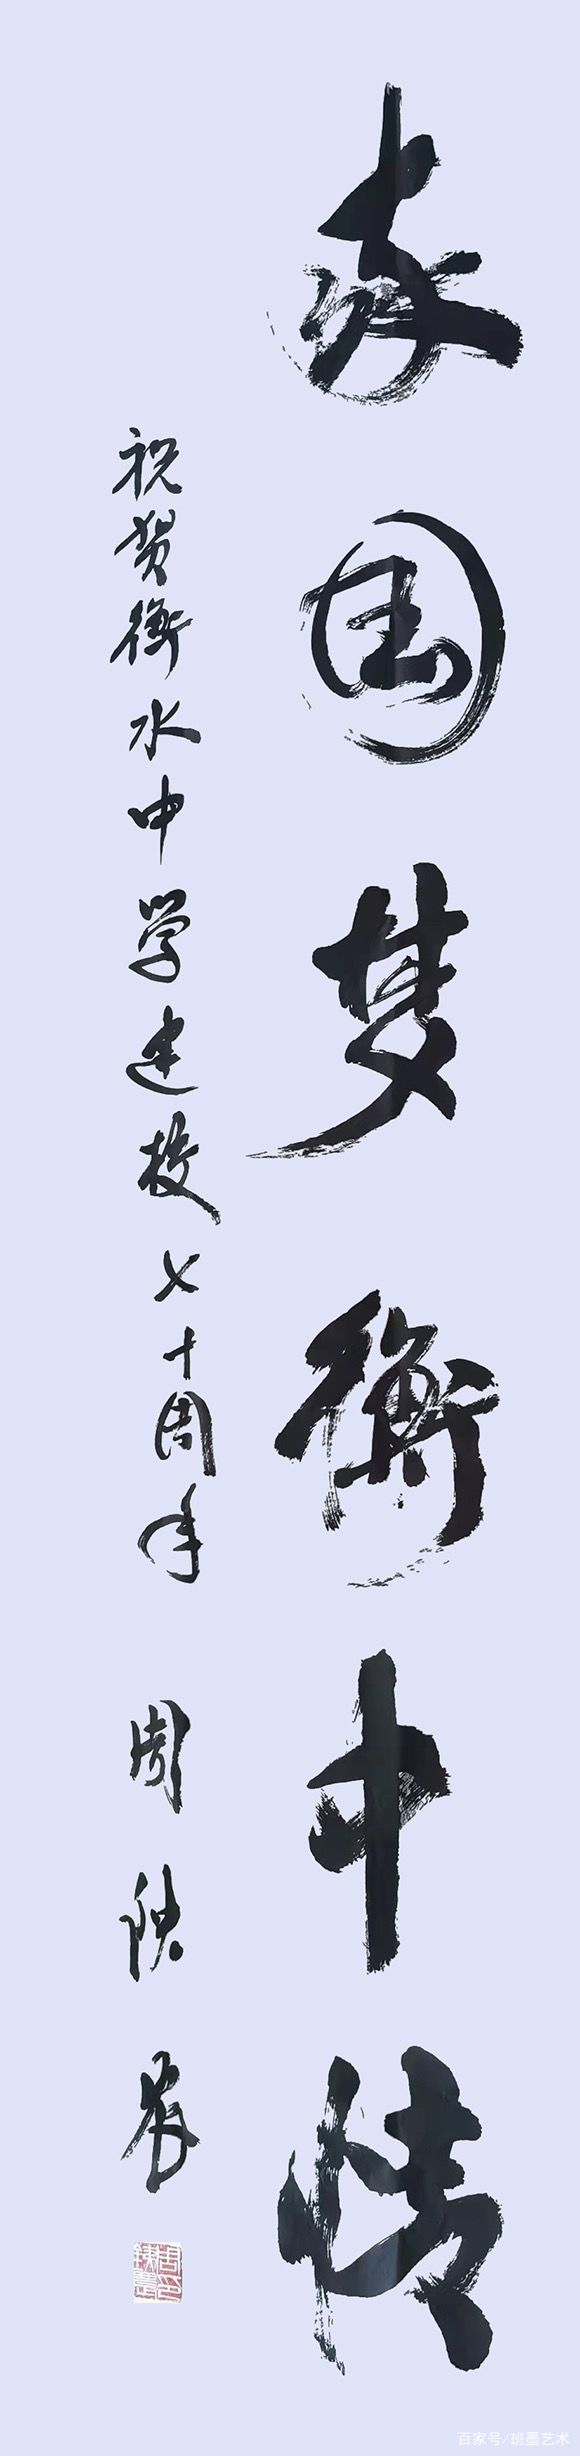 家国梦衡中情
祝贺衡水中学建校七十周年
周铁农
百家号/班墨艺术